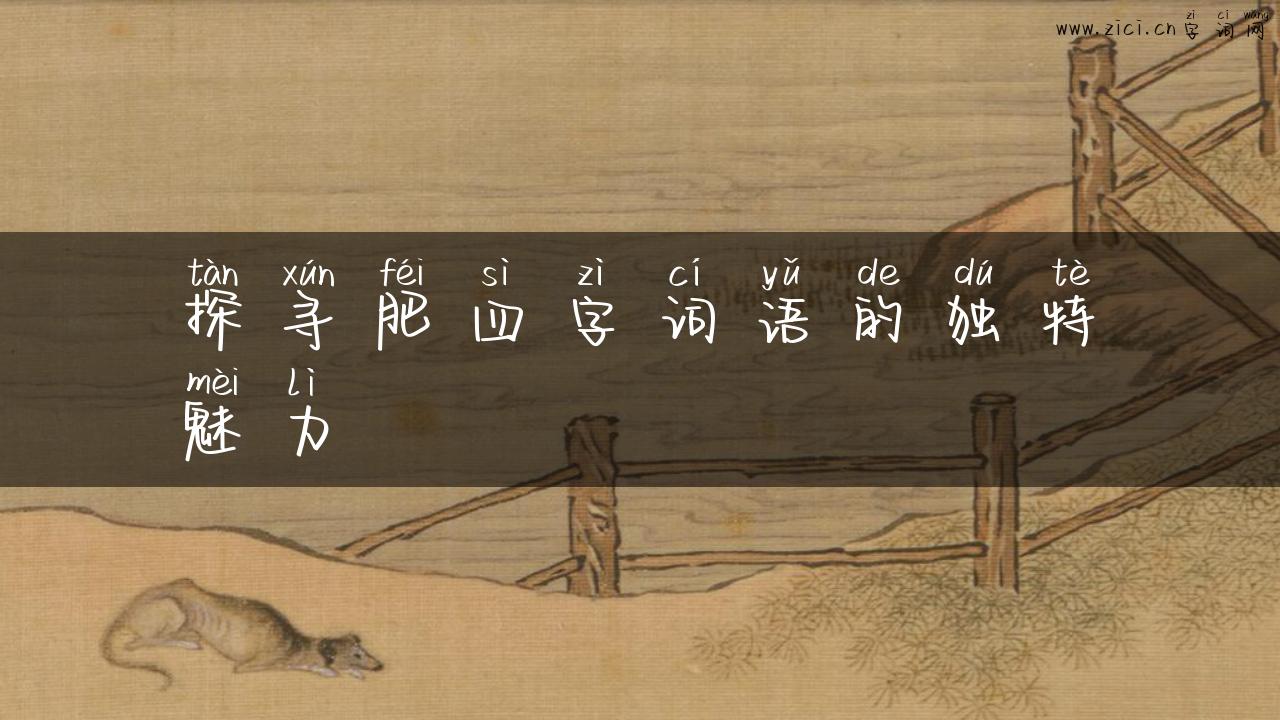 zì cí wǎng
www.zici.cn字词网
tàn xún féi sì zì cí yǔ de dú tè
探寻肥四字词语的独特
mèi lì
魅力